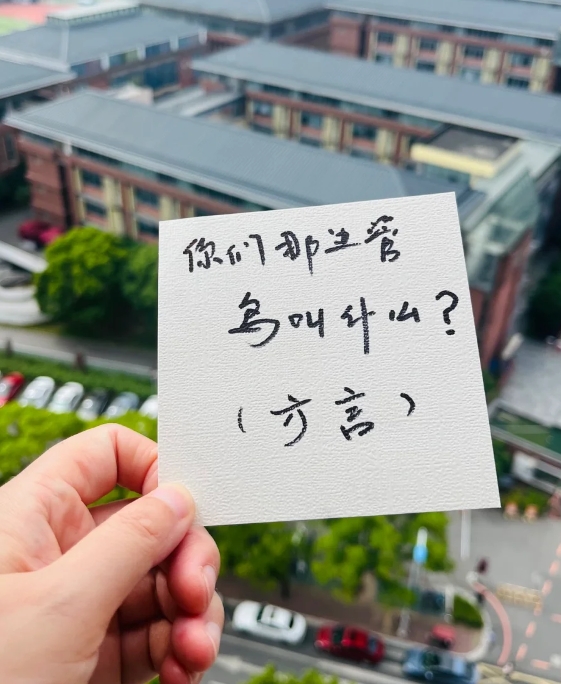 你们那里管
鸟叫什么?
(方言)